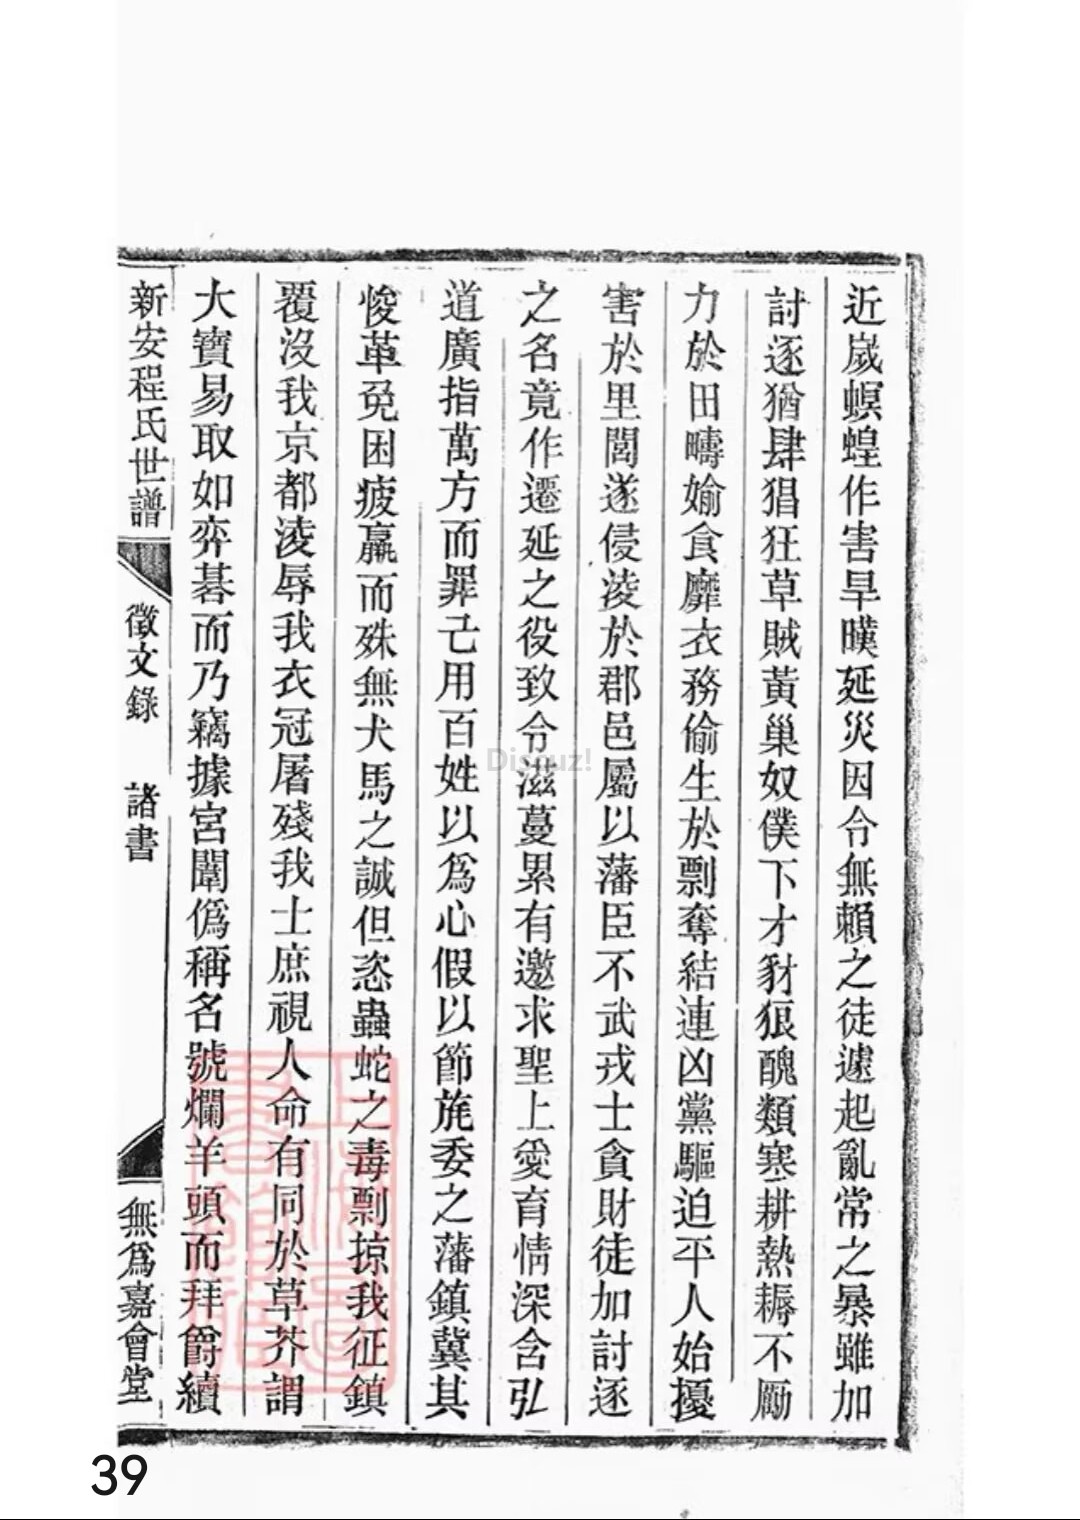 近嵗螟蝗作害旱暵延災因令無賴之徒遽起亂常之暴雖加
討逐猶肆猖狂草賊黃巢奴僕下才豺狼醜類寒耕熱耨不勵
力於田疇婾食靡衣務偷生於剽奪結連凶黨驅迫平人始擾
害於里閭遂侵淩於郡邑屬以藩臣不武戎士貪財徒加討逐
之名竟作遷延之役致令滋蔓累有邀求聖上愛育情深含弘
道廣指萬方而罪己用百姓以爲心假以節旄委之藩鎮冀其
悛革免困疲羸而殊無犬馬之誠但恣蟲蛇之毒剽掠我征鎮
覆沒我京都淩辱我衣冠屠殘我士庶視人命有同於草芥謂
大寶易取如弈碁而乃竊據宮闈僞稱名號爛羊頭而拜爵續
新安程氏世譜 徵文錄 諸書 無爲嘉會堂
Discuz!
39